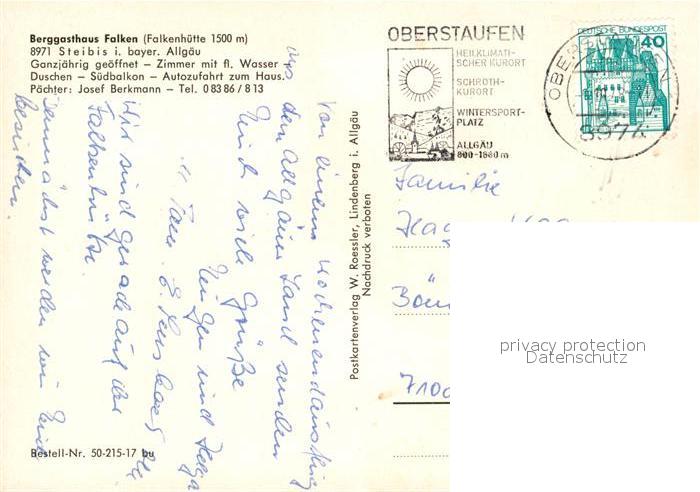 Berggasthaus Falken (Falkenhütte 1500 m)
8971 Steibis i. bayer. Allgäu
Ganzjährig geöffnet – Zimmer mit fl. Wasser –
Duschen – Südbalkon – Autozufahrt zum Haus.
Pächter: Josef Berkmann – Tel. 08386/813
Von einem Wochenendausflug
aus dem Allgäuer Land senden
Euch viele Grüße
und Helga
Wir sind gerade auf der
Falkenhütte.
Demnächst werden wir Euch
besuchen.
Bestell-Nr. 50-215-17 bu
Postkartenverlag W. Roessler, Lindenberg i. Allgäu
Nachdruck verboten
OBERSTAUFEN
HEILKLIMATI-
SCHER KURORT
SCHROTH-
KURORT
WINTERSPORT-
PLATZ
ALLGÄU
800-1880 m
DEUTSCHE BUNDESPOST
40
8974
Familie
7100
privacy protection
Datenschutz